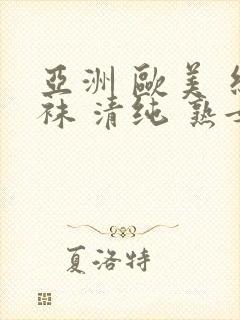 亞洲 歐美
袜 清纯 熟
夏洛特